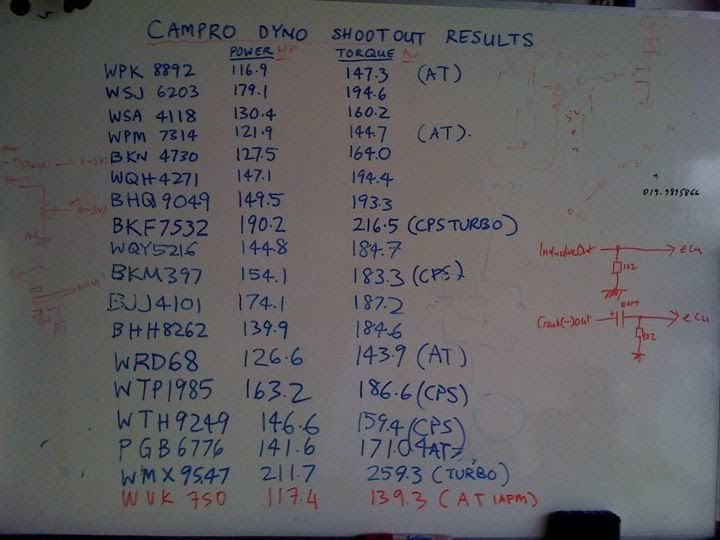 CAMPRO DYNO SHOOTOUT RESULTS
POWER HP TORQUE Nm
WPK 8892 116.9 147.3 (AT)
WSJ 6203 179.1 194.6
WSA 4118 130.4 160.2
WPM 7314 121.9 144.7 (AT).
BKN 4730 127.5 164.0
WQH4271 147.1 194.4
BHQ9049 149.5 193.3
BKF7532 190.2 216.5 (CPSTURBO)
WQY5216 144.8 184.7
BKM397 154.1 183.3 (CPS)
BJJ4101 174.1 187.2
BHH8262 139.9 184.6
WRD68 126.6 143.9 (AT)
WTP1985 163.2 186.6 (CPS)
WTH9249 146.6 159.4 (CPS)
PGB6776 141.6 171.0 (AT)
WMX9547 211.7 259.3 (TURBO)
WUK 750 117.4 139.3 (AT IAPM)
InductiveOut ecu
102
Crank(-)Out ecu
102